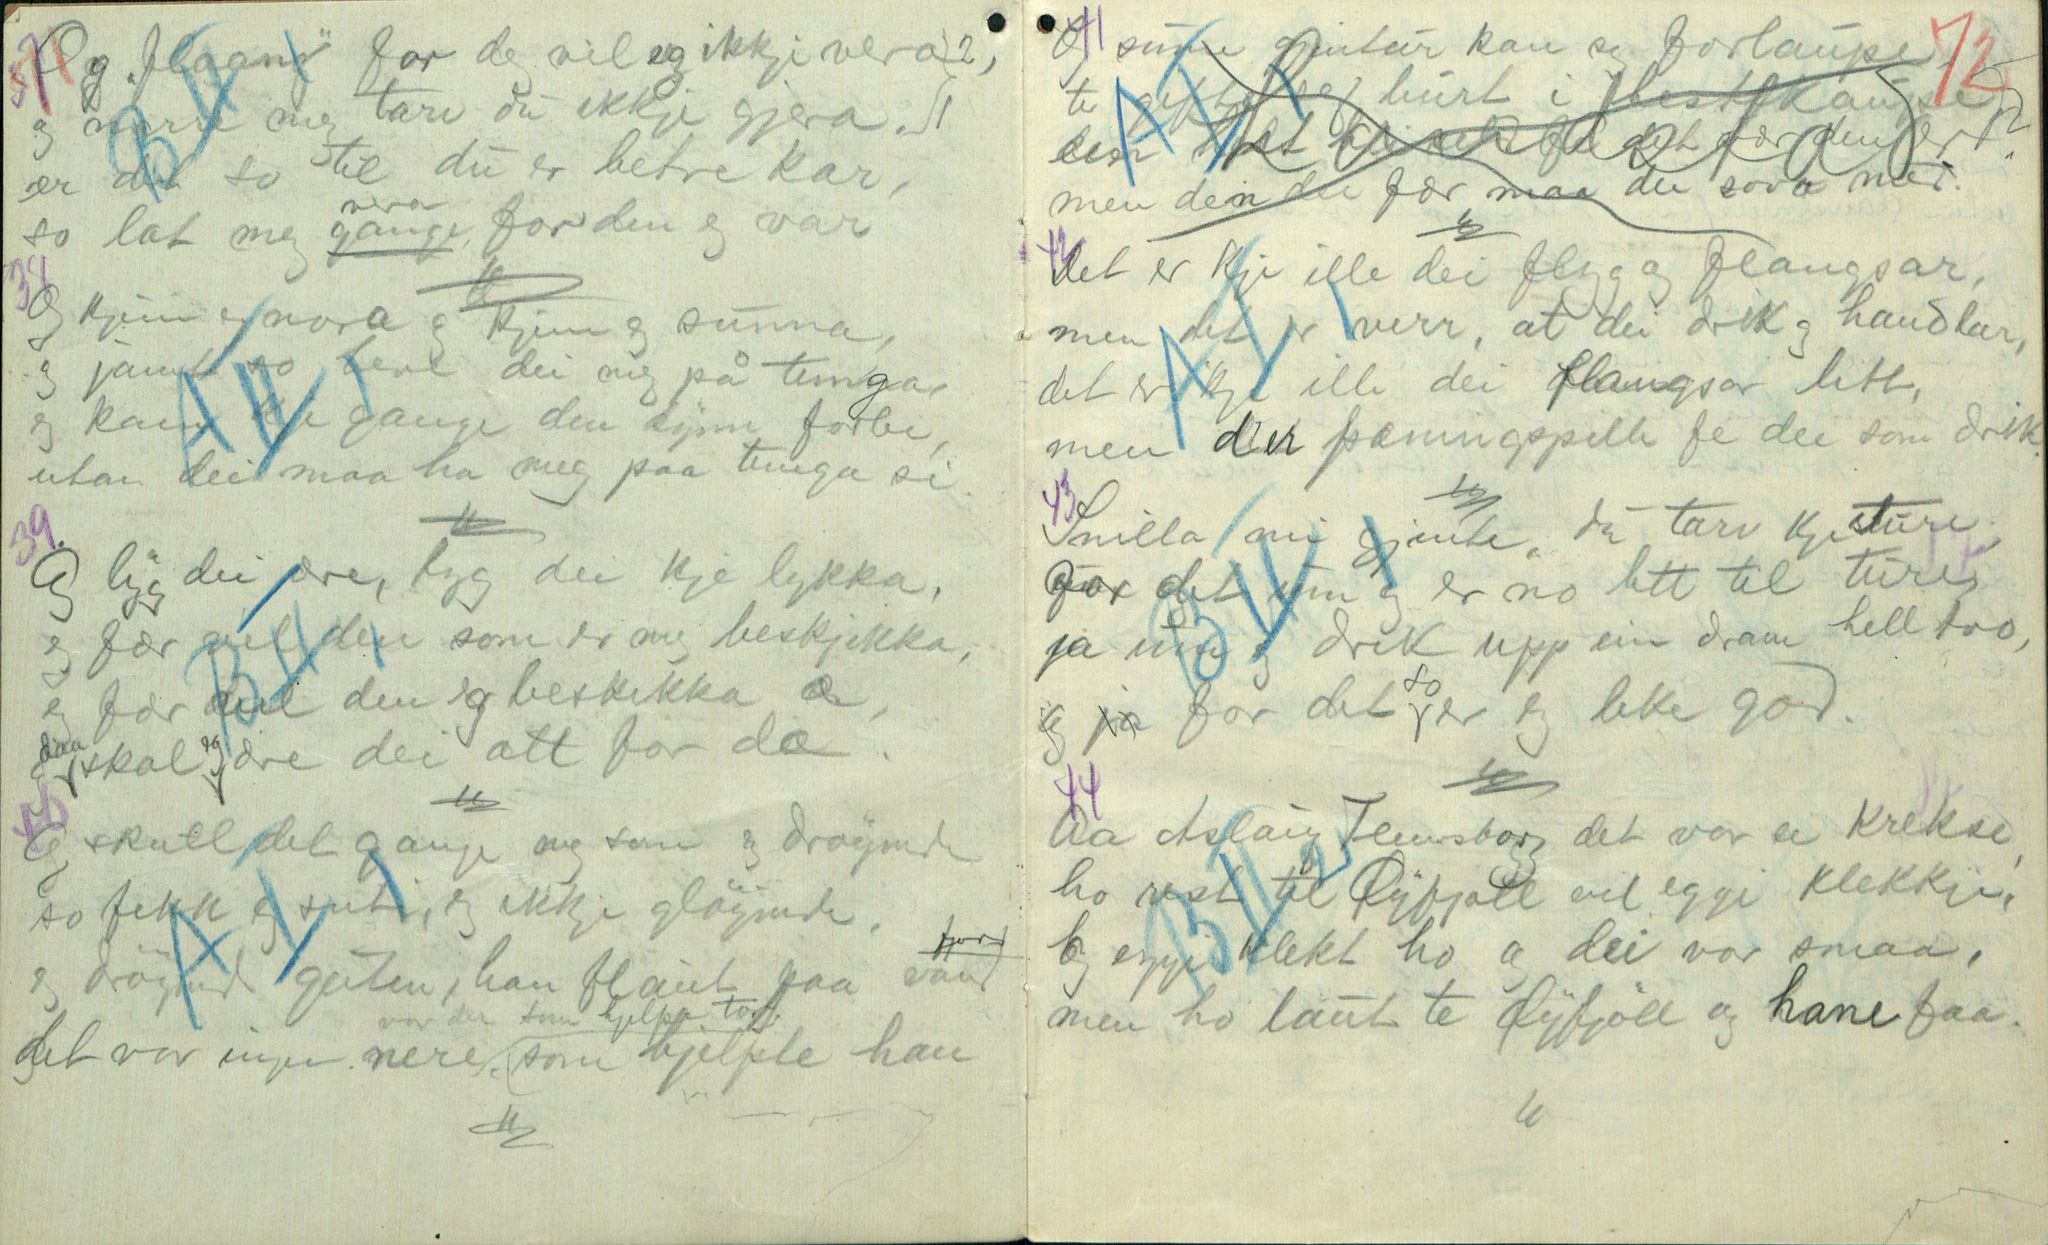 37
71
Og "flaans" for deg vil eg ikkje vera, 2
og narre meg tarv du ikkje gjera. 1
er det so til du er betre kar,
vera
so lat meg gange for den eg var
38
Og kjem eg nora og kjem eg sunna,
og jamt so hev dei meg på tunga,
eg kann kje gange den forbi,
utan dei maa ha meg paa tunga si.
39.
Og lyg dei ære, lyg dei kje lykka,
eg fær vel den som er meg beskjikka,
eg fær vel den eg beskikka æ,
daa skal eg ære dei att for dæ.
40
Og skull det gange meg som eg drøymde
so fekk eg guten, eg ikkje gløymde.
eg drøymde guten, han flaut paa vand
fjord
var der som hjelpa tord
det var ingen nere, som hjelpte han
B II 1
A II 1
B II 1
A I 1
41
72
Og sume gjentur kan seg forlaupe,
te gifte seg burt i hestekaupe
men den du fær maa du sova med.
A I 1
42
Det er kje ille dei flyg og flangsar,
men det er verr, at dei drik og handlar,
det er kje ille dei flangsar litt,
men der pæningspille fe dei som drik.
A I 1
43
Snilla mi gjente, du tarv kje sture,
for det um eg er no litt til ture,
ja um eg drik upp ein dram hell tvo,
eg for det so er eg like god.
B II 1
44
Aa Aslaug det var ei krekse,
ho rest til Lyfjøll vil eggi klekkje,
Og eggi klekt ho og dei var smaa,
men ho laut te Lyfjøll og hane faa.
B II 2